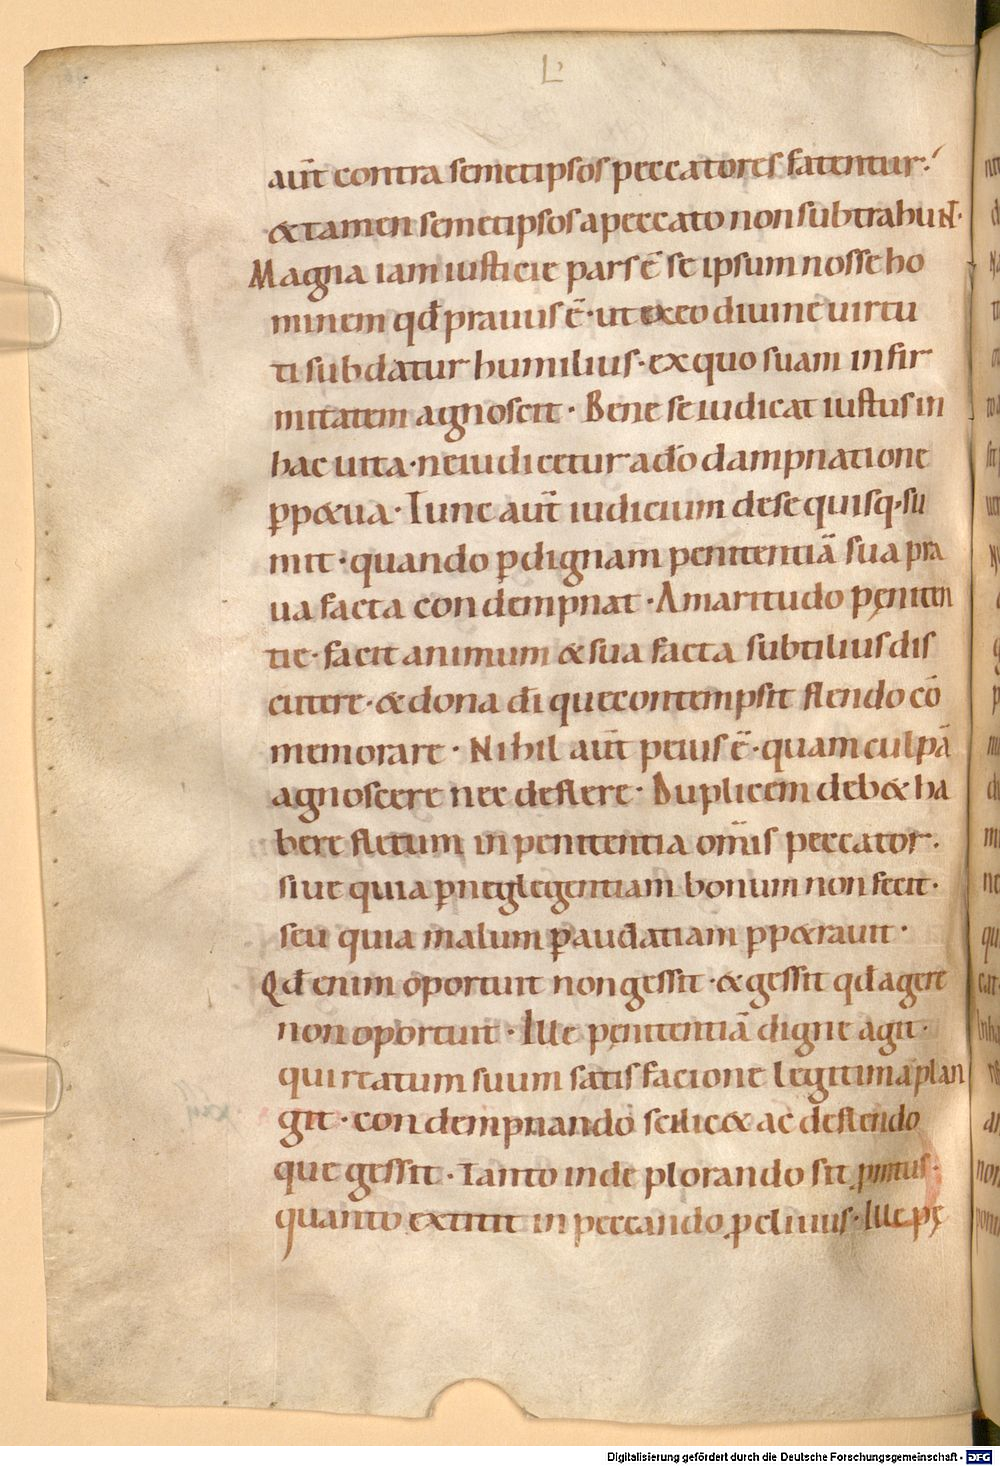 L
aut̄ contra semetipsos peccatores fatentur.
&tamen semetipsos a peccato non subtrahuNT.
Magna iam iusticie pars ē se ipsum nosse ho
minem qđ prauus ē· ut ex eo diuine uirtu
ti subdatur humilius· ex quo suam infir
mitatem agnoscit· Bene se iudicat iustus in
hac uita· ne iudicetur a dō dampnatione
ꝑp&ua· Tunc aut̄ iudicium de se quisq· su
mit· quando ꝑ dignam penitentiā sua pra
ua facta condempnat· Amaritudo pęniten
tie· facit animum & sua facta subtilius dis
cutere· & dona dī que contempsit flendo cō
memorare· Nihil aut̄ peius ē· quam culpā
agnoscere nec deflere· Duplicem deb& ha
bere fletum in penitentia om̄is peccator.
siue quia ꝑ neglegentiam bonum non fecit·
seu quia malum ꝑ audatiam ꝑp&rauit·
Qđ enim oportuit non gessit· & gessit qđ agere
non oportuit· Ille pęnitentiā digne agit·
qui reatum suum satisfacione legitima plan
git· condempnando scilic& ac deflendo
que gessit· Tanto inde plorando sit
quanto extitit in peccando ꝑcliuus· Ille pę
Digitalisierung gefördert durch die Deutsche Forschungsgemeinschaft - DFG